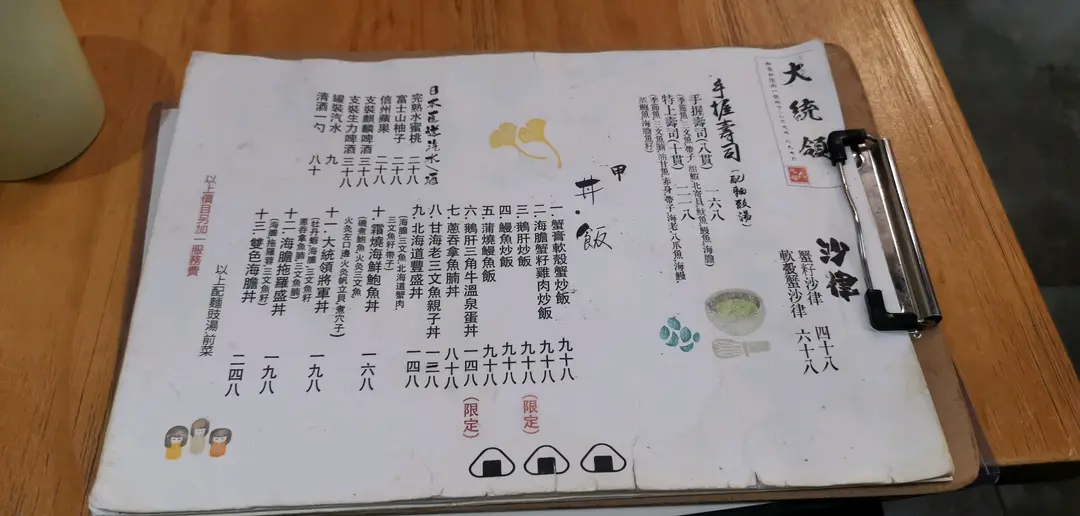 大統領
沙律
蟹籽沙律 四十八
軟殼蟹沙律 六十八
手握壽司(配麵豉湯)
手握壽司(八貫) 一六八
(季節魚,三文魚,帶子,甜蝦,北寄貝,魷魚,鰻魚,海膽)
特上壽司(十貫) 二一八
(季節魚,三文魚腩,油甘魚,赤身,帶子,海老,八爪魚,海鰻
魚,海膽,魚籽)
甲
丼.飯
一.蟹膏軟殼蟹炒飯 九十八
二.海膽蟹籽雞肉炒飯 九十八
三.鵝肝炒飯 九十八(限定)
四.鰻魚炒飯 九十八
五.蒲燒鰻魚飯 九十八
六.鵝肝三角牛溫泉蛋丼 一四八(限定)
七.蔥吞拿魚腩丼 八十八
八.甘海老三文魚親子丼 一三八
九.北海道豐盛丼 一四八
(海膽,三文魚,北海道蟹肉
三文魚籽,帶子)
十.霜燒海鮮鮑魚丼 一六八
(磯煮鮑魚,火炎三文魚
火炎左口邊,火炎帆立貝,煮穴子)
十一.大統領將軍丼 一九八
(牡丹蝦,海膽,三文魚籽
蔥吞拿魚腩,三文魚腩)
十二.海膽拖羅盛丼 一九八
(海膽,拖羅蓉,三文魚籽)
十三.雙色海膽丼 二四八
以上配麵豉湯,前菜
以上價目另加一服務費
日本直送汽水/酒
完熟水蜜桃 二十八
富士山柚子 二十八
信州蘋果 二十八
支裝麒麟啤酒 三十八
支裝生力啤酒 三十八
罐裝汽水 九
清酒一勺 八十